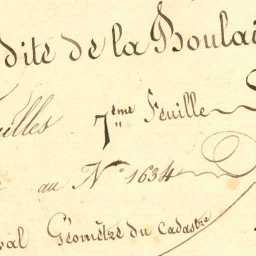 dite de la Boulai
illes 7ème Feuille
au N° 1634
val Géomètre du Cadastre